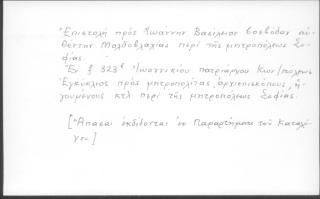 Ἐπιστολὴ πρὸς Ἰωάννην Βασίλειον βοεβόδαν αὐ-
θέντην Μολδοβλαχίας περὶ τῆς μητροπόλεως Σο-
φίας.
Ἐν f 323ᵇ Ἰωαννικίου πατριάρχου Κων/πόλεως
Ἐγκύκλιος πρὸς μητροπολίτας, ἀρχιεπισκόπους, ἡ-
γουμένους κτλ περὶ τῆς μητροπόλεως Σοφίας.
[Ἅπασαι ἐκδίδονται ἐν Παραρτήματι τοῦ Καταλό-
γου]